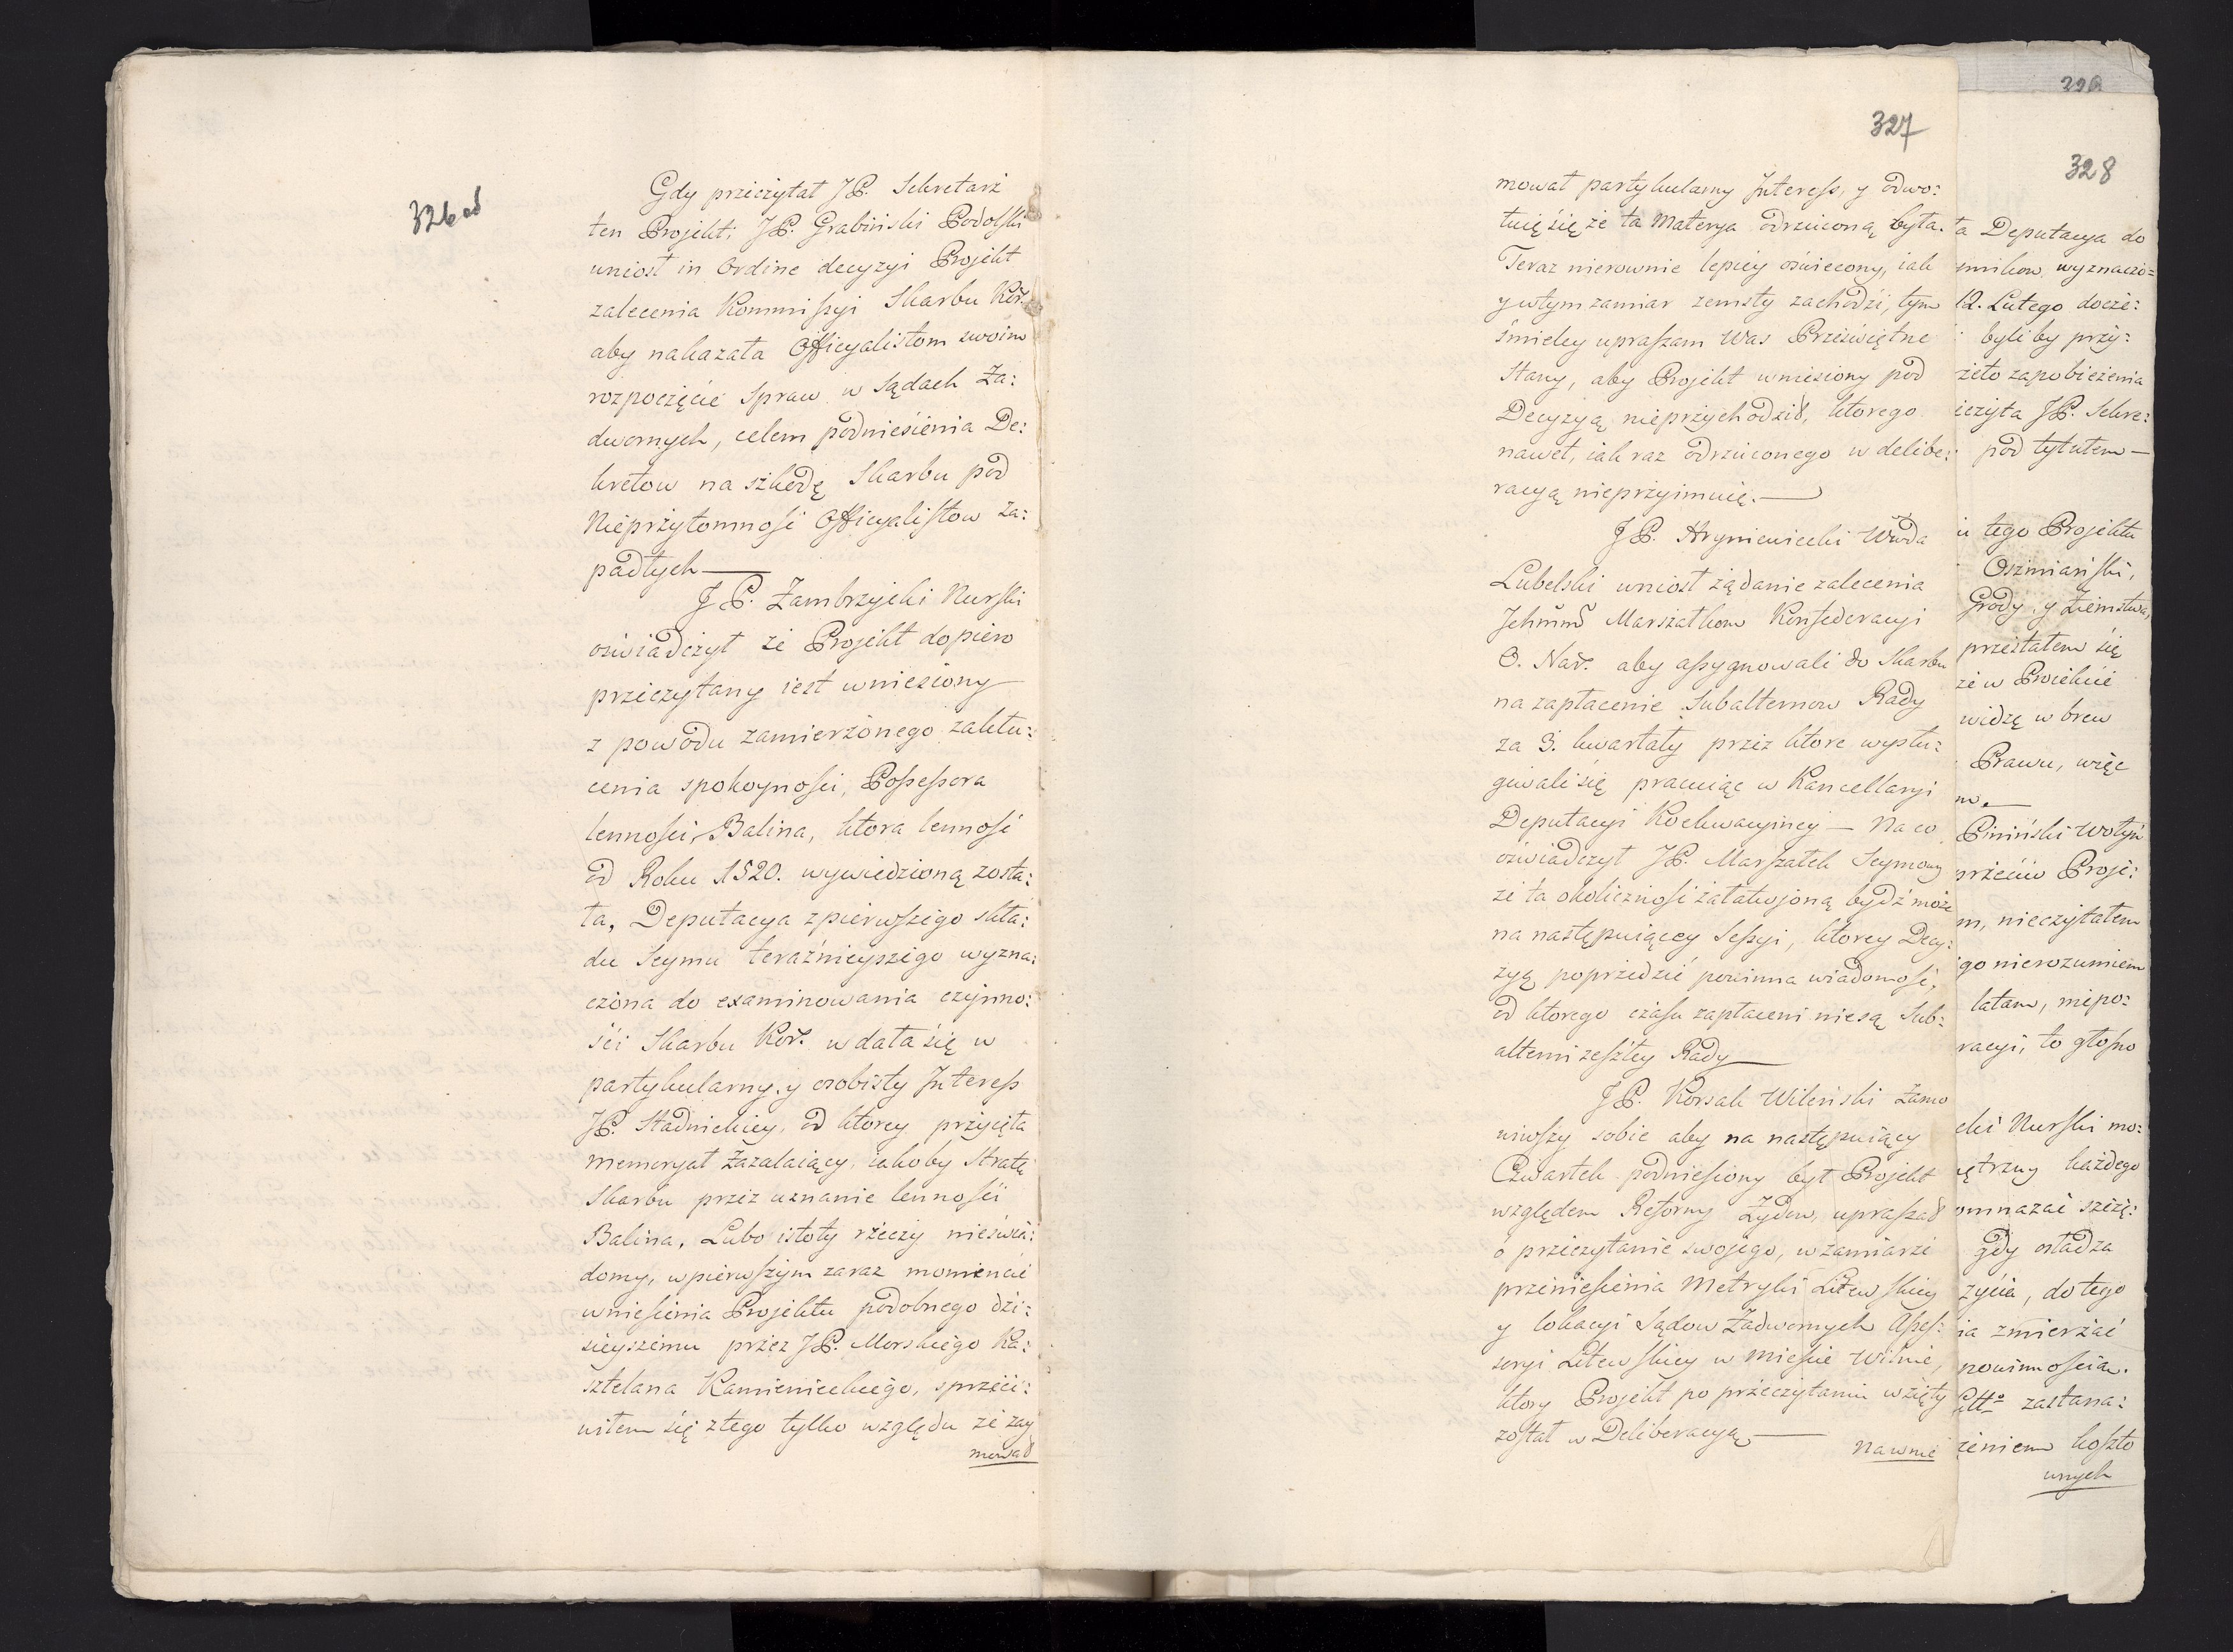 326 od
Gdy przeczytał JP. Sekretarz
ten Projekt; JP. Grabiński Podolski
uniosł in Ordine decyzyi Projekt
zalecenia Kommissyi Skarbu Kor.
aby nakazała Officyalistom swoim
rozpoczęcie spraw w Sądach Za:
dwornych, celem podniesienia De:
kretow na szkodę Skarbu pod
Nieprzytomność Officyalistow za:
padłych —
JP. Zambrzycki Nurski
oświadczył że Projekt dopiero
przeczytany iest wniesiony
z powodu zamierzonego zakłu:
cenia spokoyności, Possessora
lenności Balina, ktora lenność
od Roku 1520. wywiedzioną zosta:
ła, Deputacya z pierwszego skła:
du Seymu teraźnieyszego wyzna:
czona do examinowania czynno:
ści Skarbu Kor. wdała się w
partykularny y osobisty Interess
JP. Stadnickiey, od ktorey przyięła
memoryał Zazalaiący iakoby stratę
Skarbu przez uznanie lenności
Balina, Lubo istoty rzeczy nieświa:
domy, w pierwszym zaraz momencie
wniesienia Projektu podobnego dzi:
sieyszemu przez JP. Morskiego Ka:
sztelana Kamienieckiego, sprzeci:
wiłem się z tego tylko względu że zay
mował
327
mował partykularny Interess, y odwo:
łuię się że ta Materya odrzuconą była.
Teraz nierownie lepiey oświecony, iak
y w tym zamiar zemsty zachodzi, tym
śmieley upraszam Was Przeświętne
Stany, aby Projekt wniesiony pod
Decyzyą nieprzychodził, ktorego
nawet, iak raz odrzuconego w delibe:
racyą nieprzyimuię. —
JP. Hryniewiecki Wwda
Lubelski uniosł żądanie zalecenia
Jchmm Marszałkom Konfederacyi
O. Nar. aby assygnowali do Skarbu
na zapłacenie Subalternow Rady
za 3. kwartały przez ktore wysłu:
giwali się pracuiąc w Kancellaryi
Deputacyi Koekwacyiney — Na co
oświadczył JP. Marszałek Seymowy
że ta okoliczność załatwioną bydź może
na następuiącey Sessyi, ktorey Decy:
zyą poprzedzić powinna wiadomość,
od ktorego czasu zapłaceni niesą Sub:
alterni zeszłey Rady —
JP. Korsak Wileński Zamo
wiwszy sobie aby na następuiący
Czwartek podniesiony był Projekt
względem Reformy Żydow, upraszał
o przeczytanie swojego, w zamiarze
przeniesienia Metryki Litewskiey
y lokacyi Sądow Zadwornych Asses:
soryi Litewskiey w Mieście Wilnie,
ktory Projekt po przeczytaniu wzięty
został w Deliberacyą —
Na wnie
328
ta Deputacya do
wyznaczo=
12. Lutego docze:
byliby przy:
żeto zapobieżenia
JP. Sekre:
pod tytułem —
tego Projektu
Oszmiański,
Grody y Ziemstwa,
przestałem się
że w Proiekcie
widzę w brew
Prawu, więc
Piniński Wołyń
Proje:
nieczytałem
go nierozumiem
latam, niepo:
racyi, to głosno
Nurski mo:
każdego
gdy osładza
życia, do tego
zmierzać
powinnościa.
zastana:
koszto
wnych